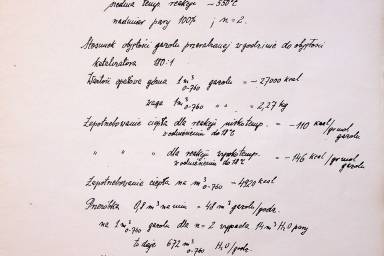 średnia temp. reakcji ~ 550°C
nadmiar pary 100% ; n = 2.
Stosunek objętości gazolu przerabianej w godzinie do objętości
katalizatora 110:1
Wartość opałowa górna 1 m³ 0-760 gazolu = ~ 27000 kcal
waga 1 m³ 0-760 " " = 2,27 kg
Zapotrzebowanie ciepła dla reakcji niskotemp. = ~ 110 kcal/gmol gazolu
z odniesieniem do 18°C
" " dla reakcji wysokotemp. = ~ 146 kcal/gmol gazolu
z odniesieniem do 18°C
Zapotrzebowanie ciepła na m³ 0-760 ~ 4920 kcal
Przeróbka 0,8 m³ na min = 48 m³ gazolu/godz.
na 1 m³ 0-760 gazolu dla n = 2 wypada 14 m³ H₂O pary
to daje 672 m³ 0-760 H₂O/godz.